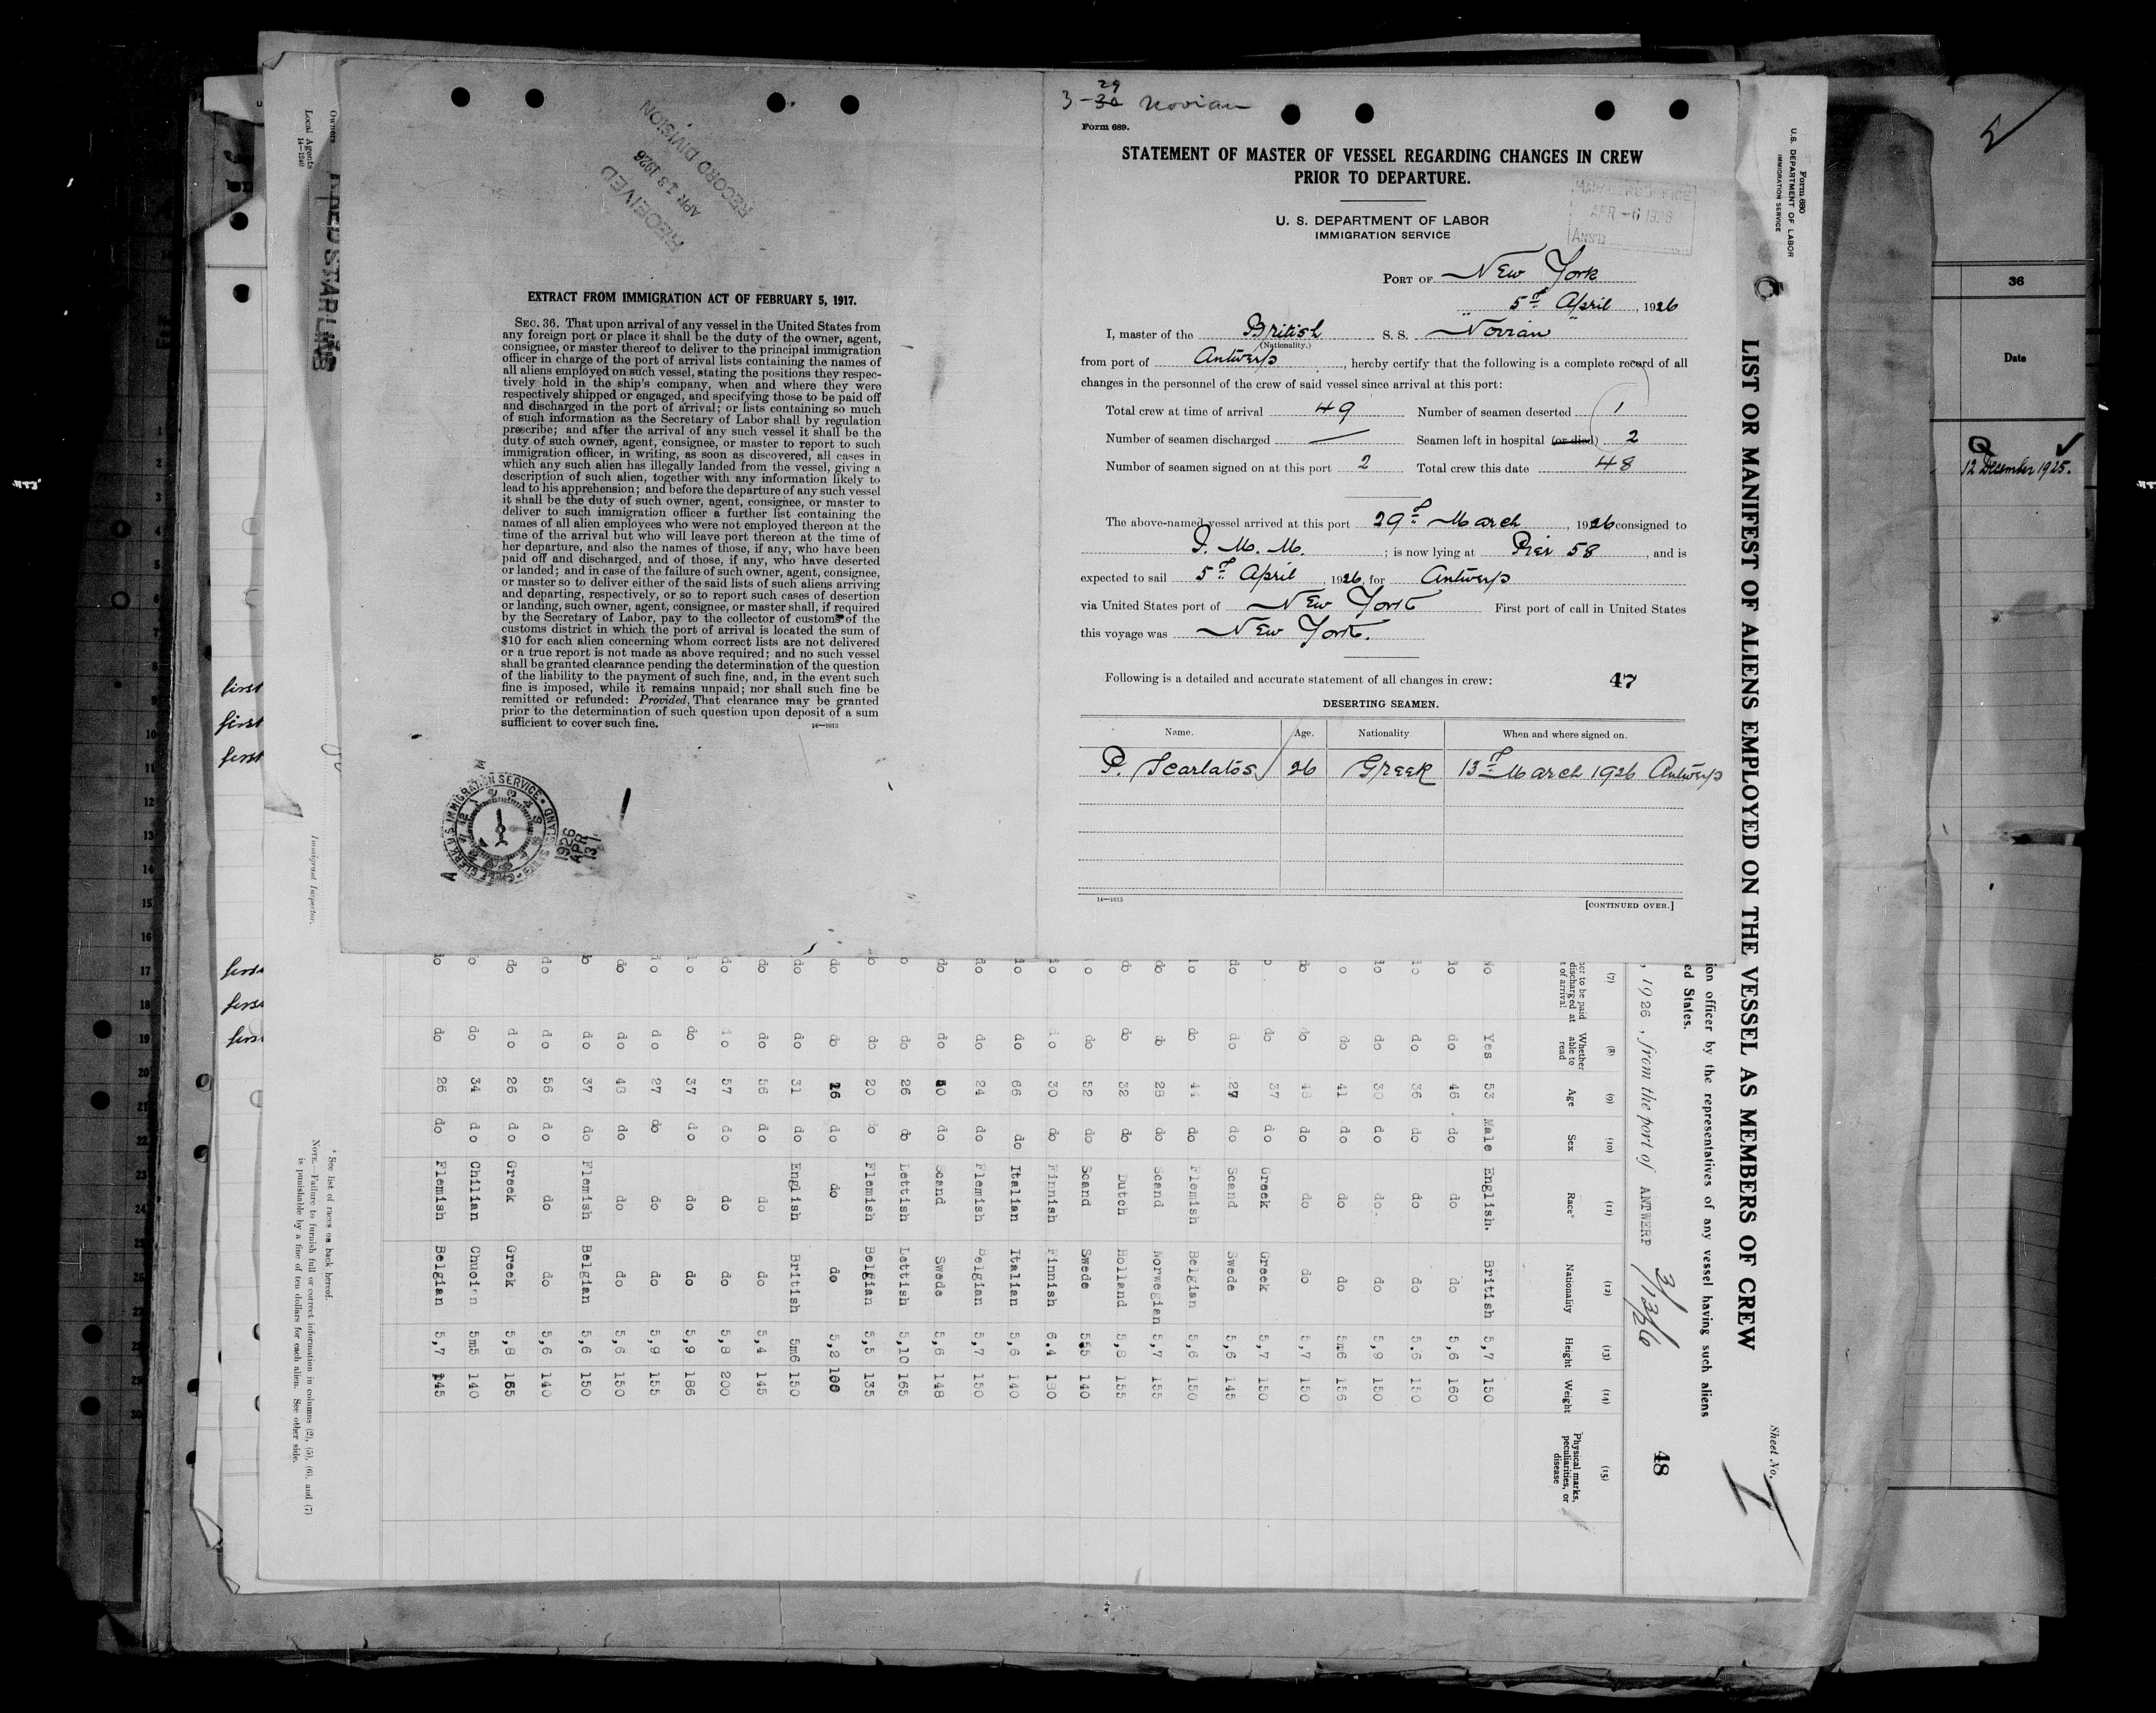 3-30 29 Novian
Form 689.
STATEMENT OF MASTER OF VESSEL REGARDING CHANGES IN CREW
PRIOR TO DEPARTURE.
U. S. DEPARTMENT OF LABOR
IMMIGRATION SERVICE
APR -6 1926
ANS'D
PORT OF New York
5th April, 1926
I, master of the British S. S. "Novian"
(Nationality.)
from port of Antwerp, hereby certify that the following is a complete record of all
changes in the personnel of the crew of said vessel since arrival at this port:
Total crew at time of arrival 49 Number of seamen deserted 1
Number of seamen discharged — Seamen left in hospital (or died) 2
Number of seamen signed on at this port 2 Total crew this date 48
The above-named vessel arrived at this port 29th March, 1926 consigned to
I. M. M.; is now lying at Pier 58, and is
expected to sail 5th April, 1926, for Antwerp
via United States port of New York First port of call in United States
this voyage was New York.
Following is a detailed and accurate statement of all changes in crew: 47
DESERTING SEAMEN.
Name. Age. Nationality When and where signed on.
P. Scarlatos 26 Greek 13th March 1926 Antwerp
14—1613
[CONTINUED OVER.]
RECEIVED
APR 13 1926
RECORD DIVISION
EXTRACT FROM IMMIGRATION ACT OF FEBRUARY 5, 1917.
SEC. 36. That upon arrival of any vessel in the United States from
any foreign port or place it shall be the duty of the owner, agent,
consignee, or master thereof to deliver to the principal immigration
officer in charge of the port of arrival lists containing the names of
all aliens employed on such vessel, stating the positions they respec-
tively hold in the ship's company, when and where they were
respectively shipped or engaged, and specifying those to be paid off
and discharged in the port of arrival; or lists containing so much
of such information as the Secretary of Labor shall by regulation
prescribe; and after the arrival of any such vessel it shall be the
duty of such owner, agent, consignee, or master to report to such
immigration officer, in writing, as soon as discovered, all cases in
which any such alien has illegally landed from the vessel, giving a
description of such alien, together with any information likely to
lead to his apprehension; and before the departure of any such vessel
it shall be the duty of such owner, agent, consignee, or master to
deliver to such immigration officer a further list containing the
names of all alien employees who were not employed thereon at the
time of the arrival but who will leave port thereon at the time of
her departure, and also the names of those, if any, who have been
paid off and discharged, and of those, if any, who have deserted
or landed; and in case of the failure of such owner, agent, consignee,
or master so to deliver either of the said lists of such aliens arriving
and departing, respectively, or so to report such cases of desertion
or landing, such owner, agent, consignee, or master shall, if required
by the Secretary of Labor, pay to the collector of customs of the
customs district in which the port of arrival is located the sum of
$10 for each alien concerning whom correct lists are not delivered
or a true report is not made as above required; and no such vessel
shall be granted clearance pending the determination of the question
of the liability to the payment of such fine, and, in the event such
fine is imposed, while it remains unpaid; nor shall such fine be
remitted or refunded: Provided, That clearance may be granted
prior to the determination of such question upon deposit of a sum
sufficient to cover such fine.
14—1613
1926
APR
13
Form 680
U. S. DEPARTMENT OF LABOR
IMMIGRATION SERVICE
Sheet No. 1
LIST OR MANIFEST OF ALIENS EMPLOYED ON THE VESSEL AS MEMBERS OF CREW
ion officer by the representatives of any vessel having such aliens
ed States.
, 1926, from the port of ANTWERP 3/13/26 48
(7) (8) (9) (10) (11) (12) (13) (14) (15)
Whether able to read Age Sex Race* Nationality Height Weight Physical marks, peculiarities, or disease
No Yes 53 Male English. British 5,7 150
do do 46 do do do 5,6 160
do do 36 do do do 5.6 150
do do 30 do do. do 5,9 150
do do 41 do do do 5m6 156
do do 48 do do do 5,7 150
do do 37 do Greek Greek 5,7 150
do do 27 do Scand Swede 5,6 145
do do 44 do Flemish Belgian 5,6 150
do do 28 do Scand Norwegian 5,7 155
do do 32 do Dutch Holland 5,8 155
do do 52 do Scand Swede 5,5 140
do do 30 do Finnish Finnish 6.4 180
do do 66 do Italian Italian 5,6 140
do do 24 do Flemish Belgian 5,7 150
do do do Scand Swede 5,6 148
do do 26 do Lettish Lettish 5,10 165
do do 20 do Flemish Belgian 5,5 135
do do do do do 5,2 100
do do 31 do English British 5m6 150
do do 56 do do do 5,4 145
do do 57 do do do 5,8 200
do do 37 do do do 5,9 186
do do 27 do do do 5,9 155
do do 43 do do do 5,6 150
do do 37 do Flemish Belgian 5,6 150
do do 56 do do do 5,6 140
do do 26 do Greek Greek 5,8 165
do do 34 do Chilian 5m5 140
do do 26 do Flemish Belgian 5,7 145
* See list of races on back hereof.
NOTE.—Failure to furnish full or correct information in columns (2), (5), (6), and (7)
is punishable by a fine of ten dollars for each alien. See other side.
Immigrant Inspector.
Owners RED STAR LINE
Local Agents
14—1240
36
Date
12 December 1925.
first
first
first